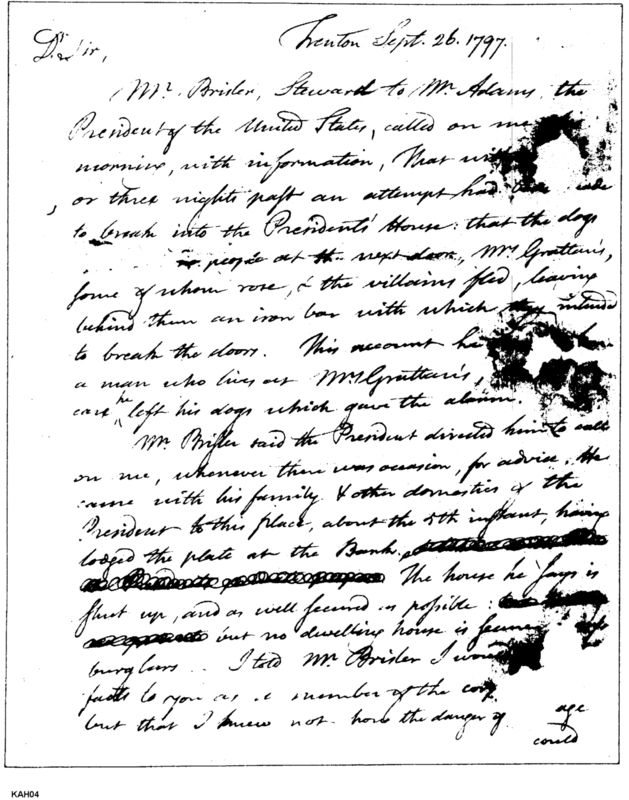 Dr. Sir,
Trenton Sept. 26. 1797.
Mr. Brisler, Steward to Mr. Adams, the
President of the United States, called on me
morning, with information, That
, or three nights past an attempt had been made
to break into the Presidents' House: that the dogs
people at the next door, Mrs Grattan's,
some of whom rose, & the villains fled, leaving
behind them an iron bar with which they intended
to break the doors. This account he
a man who lives at Mrs Grattan's,
care he left his dogs which gave the alarm.
Mr. Brisler said the President directed him to call
on me, whenever there was occasion, for advice. He
came with his family & other domestics of the
President to this place, about the 5th instant, having
lodged the plate at the Bank.
The house he says is
shut up, and as well secured as possible:
but no dwelling house is secure
burglars. I told Mr. Brisler I would
facts to you as a member of the corp
but that I knew not how the danger of age
could
KAH04